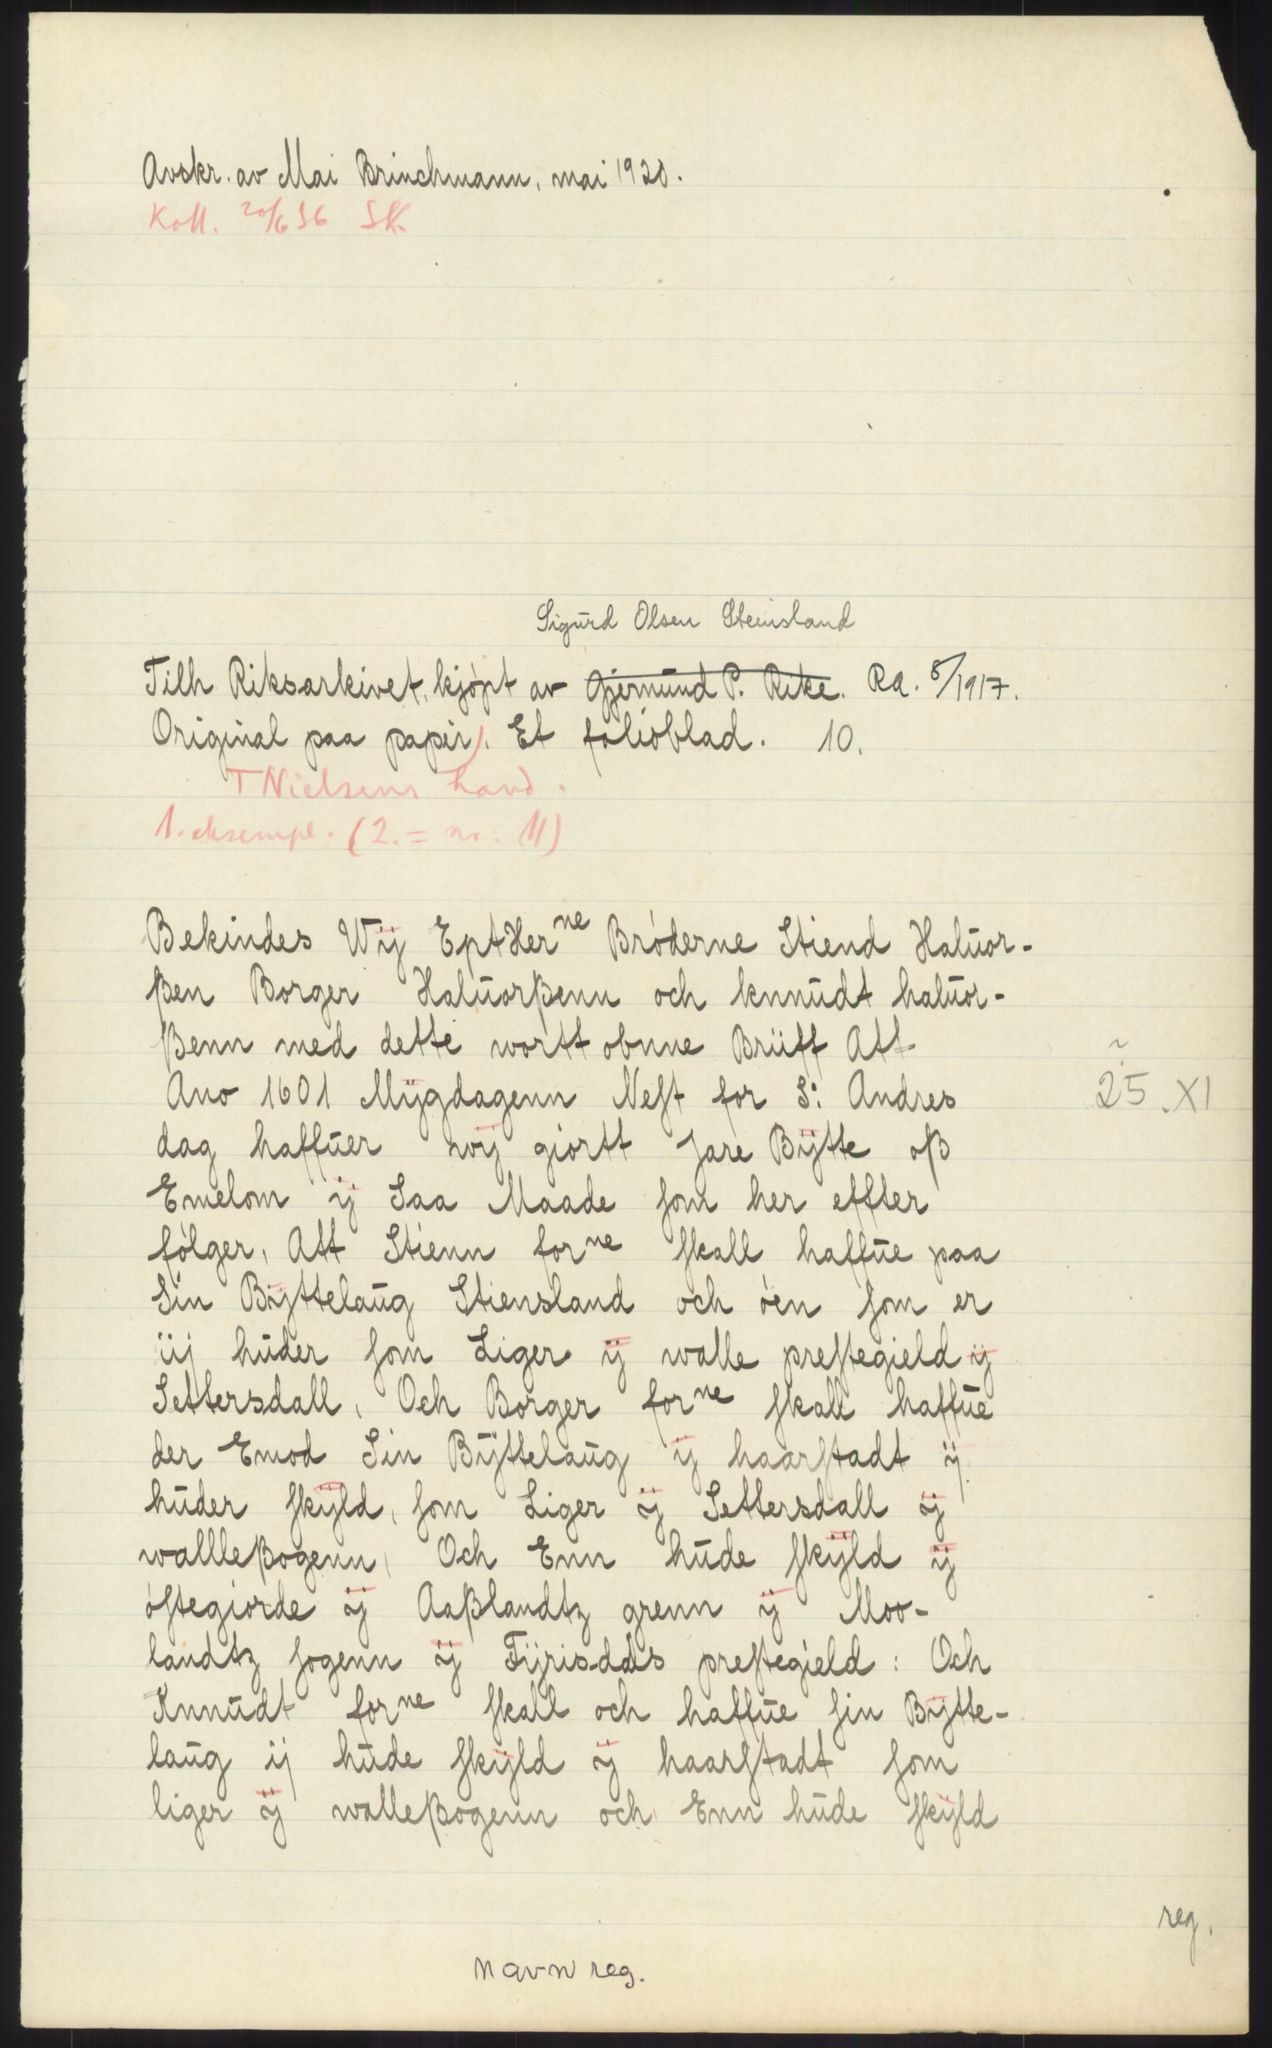 Avskr. av Mai Brinchmann, mai 1920.
Koll. 20/6 36 SK.
Sigurd Olsen Steinsland
Tilh Riksarkivet, kjøpt av Gjermund P. Rike. Ra. 8/1917.
Original paa papir. Et folioblad. 10.
T Nielsens hand.
1. eksempl. (2. = nr. 11)
Bekindes Wÿ EptHer ne Brøderne Stiend Haluor-
ßen Borger Haluorßenn och knnudt haluor-
ßenn med dette wortt obnne Brüff Att
Ano 1601 Mÿgdagenn Neſt for S: Andres
25. XI
dag haffuer wÿ giortt ſare Bÿtte oß
Emelom ÿ Saa Maade ſom her effter
følger, Att Stienn for ne ſkall haffue paa
Sin Bÿttelaug Stiensland och øen ſom er
iij huder ſom Liger ÿ walle preſtegield ÿ
Settersdall, Och Borger for ne ſkall haffue
der Emod Sin Bÿttelaug ÿ haarſtadt ij
huder ſkÿld, ſom Liger ÿ Settersdall ÿ
walleßogenn, Och Enn hude ſkÿld ÿ
øſtegiorde ÿ Aaßlandtz grenn ÿ Moo-
landtz ſogenn ÿ Tÿrisdals preſtegield: Och
Knnudt for ne ſkall och haffue ſin Bÿtte-
laug ij hude ſkÿld ÿ haarſtadt ſom
liger ÿ walleßogenn och Enn hude ſkÿld
reg.
navn reg.